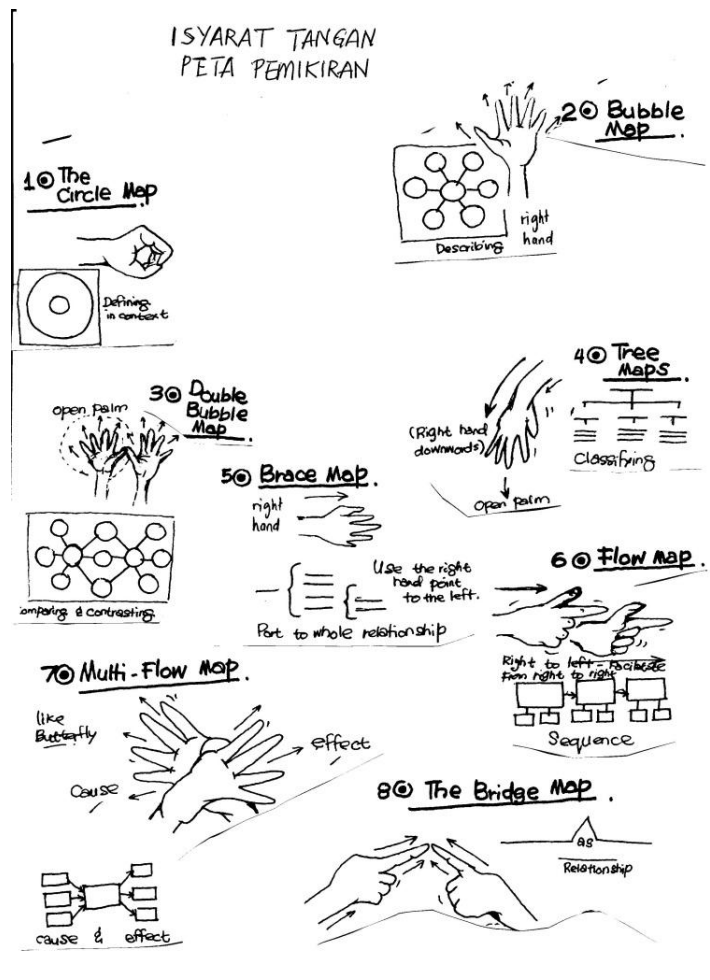 ISYARAT TANGAN
PETA PEMIKIRAN
1 The
Circle Map
Defining
in context
2 Bubble
Map.
Describing
right
hand
3 Double
Bubble
Map
open palm
omparing & contrasting
4 Tree
Maps.
(Right hand
downwords)
Open palm
Classifying
5 Brace Map.
right
hand
Use the right
hand point
to the left.
Part to whole relationship
6 Flow Map.
Right to left - Facilitate
from right to right
Sequence
7 Multi-Flow Map.
like
Butterfly
Cause
effect
cause & effect
8 The Bridge Map.
as
Relationship